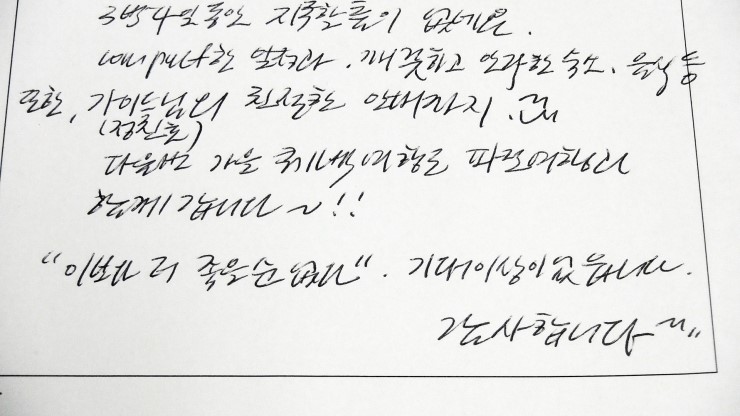 3박4일동안 지루할틈이 없네요.
compact한 일정과. 깨끗하고 안락한 숙소, 음식 등
또한, 가이드님의 친절한 안내까지.
(정진호)
다음번 가을 여행도 파로여행과
함께 갑니다~!!
"이보다 더 좋을순 없다". 기대이상이였습니다.
감사합니다~"